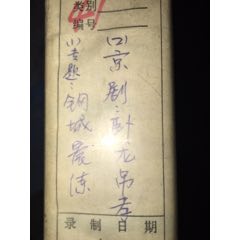 类别
编号
(1)专题:钢城晨练
(2)京剧:卧龙吊孝
录制日期